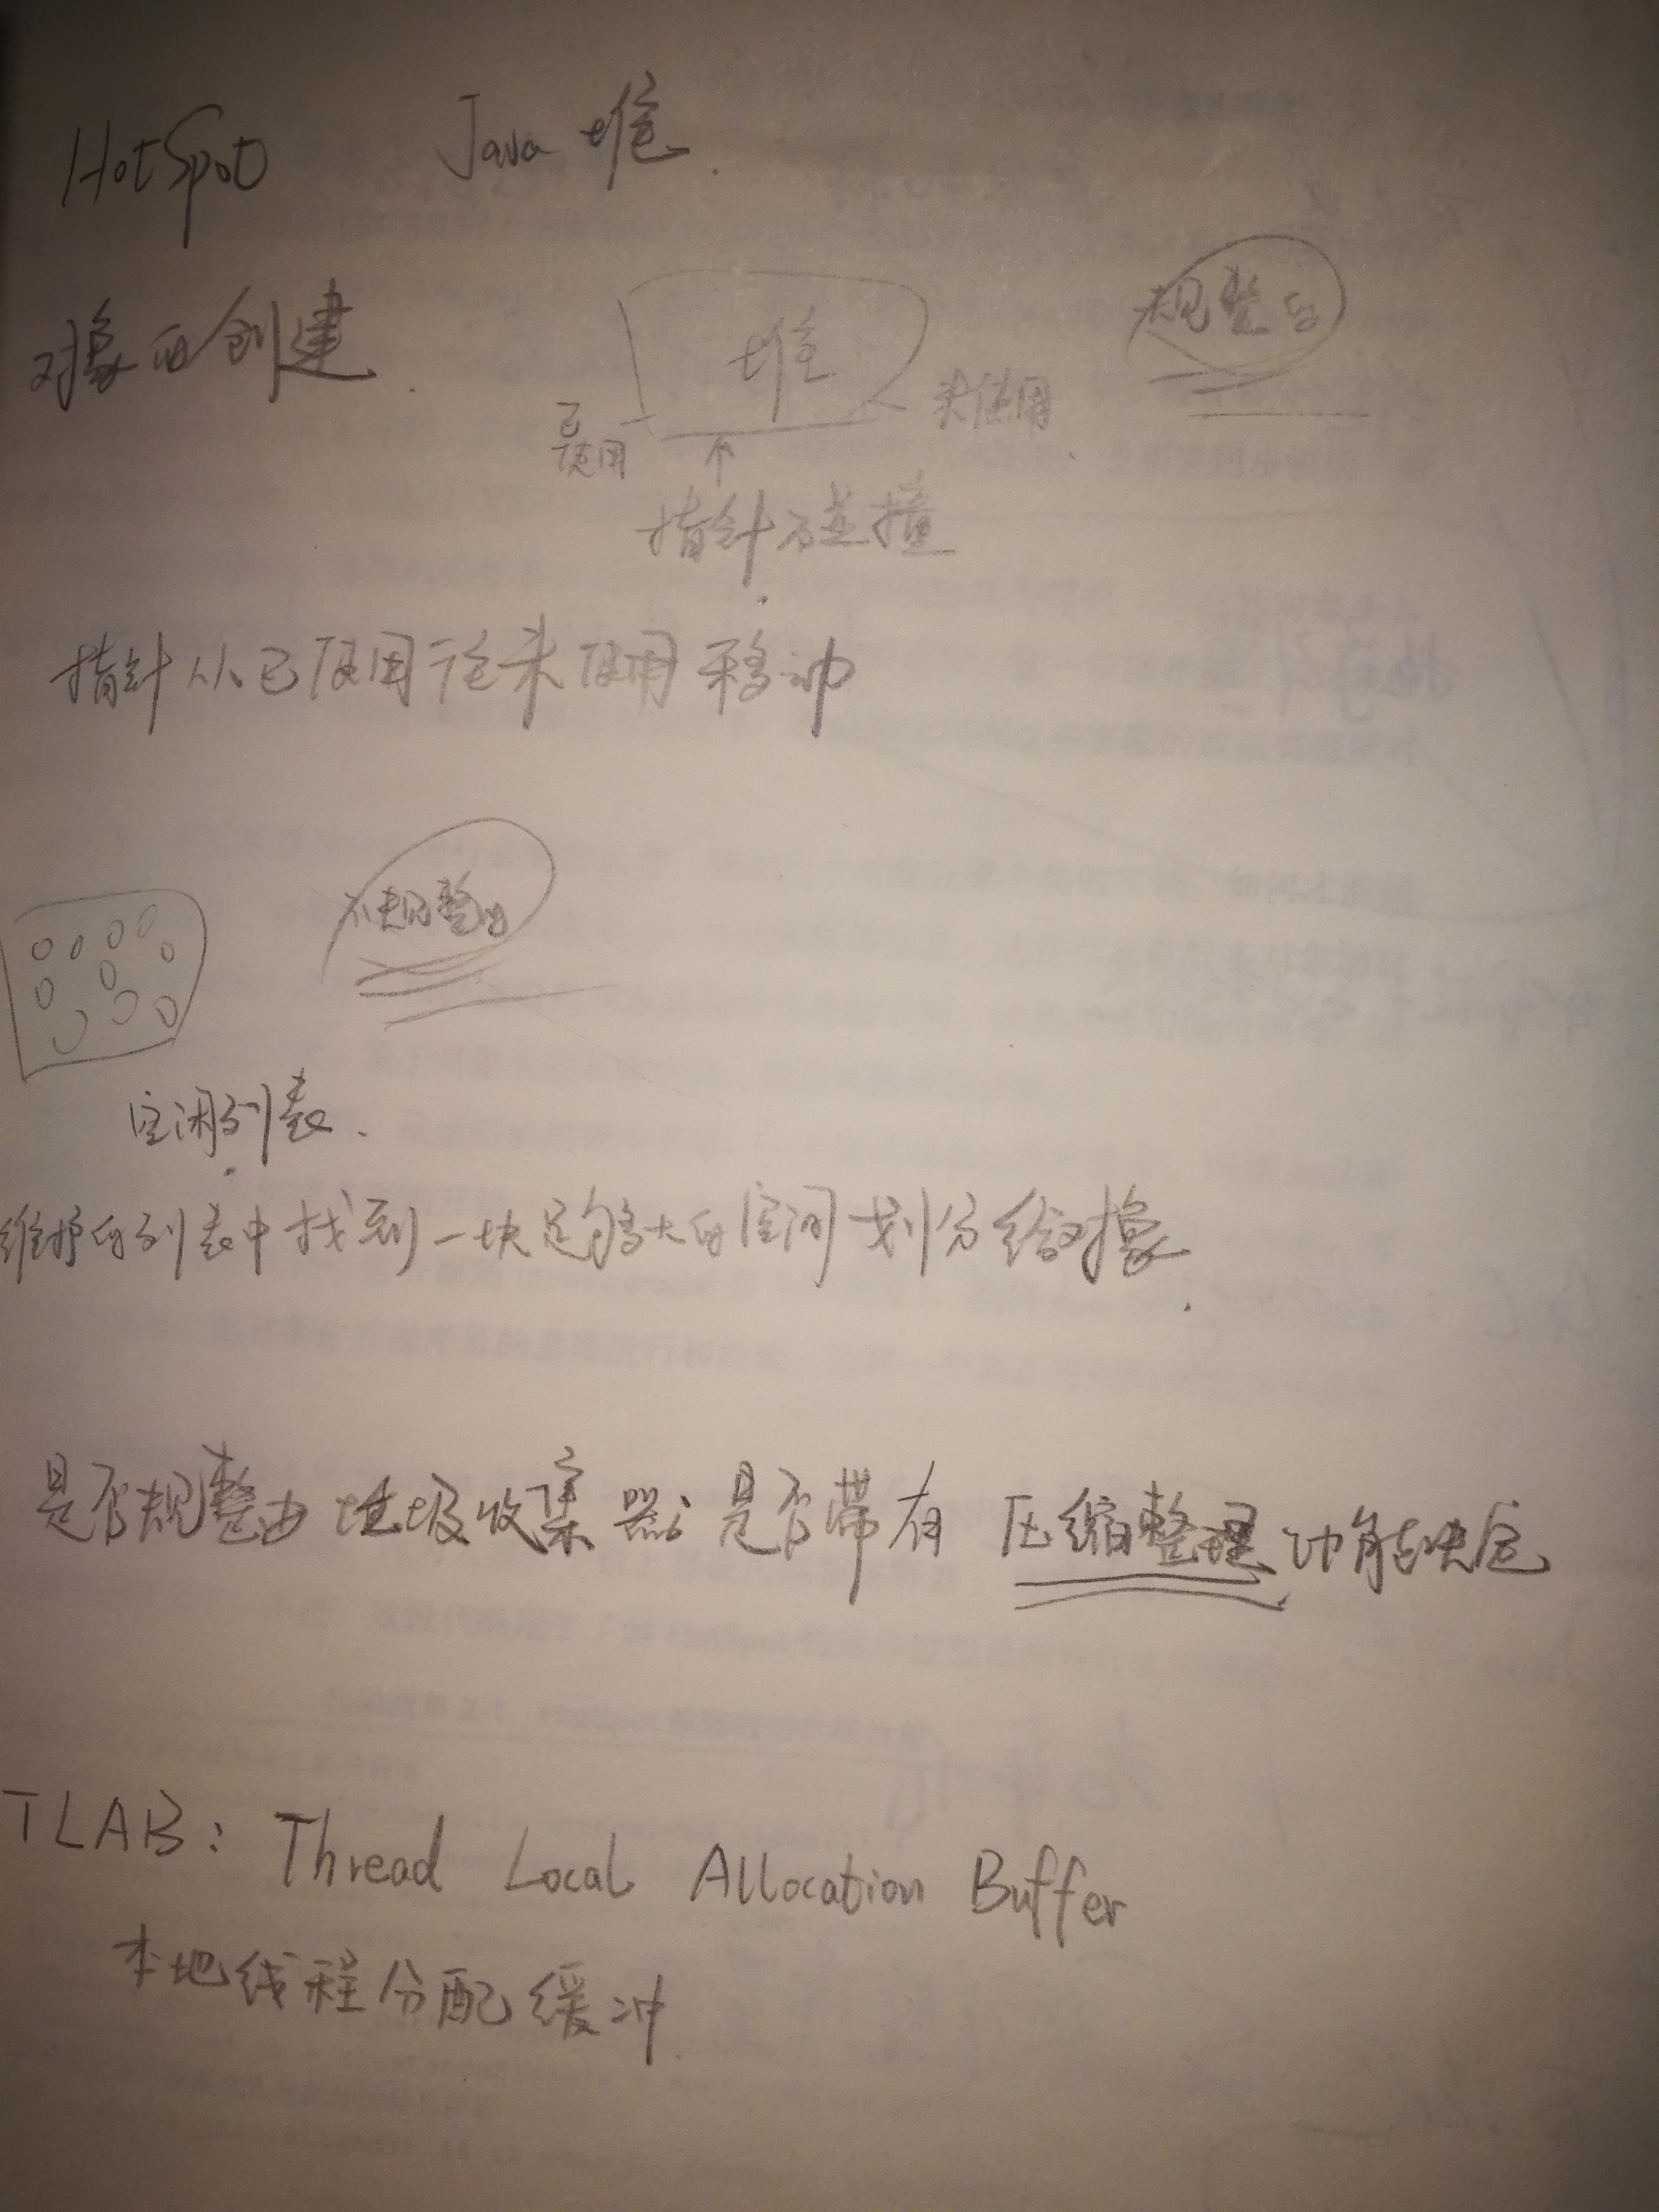 HotSpot Java 堆.
对象的创建.
堆
规整的
已使用
未使用
指针碰撞
指针从已使用往未使用移动
不规整的
空闲列表.
维护的列表中找到一块足够大的空间划分给对象.
是否规整由垃圾收集器是否带有压缩整理功能决定
TLAB: Thread Local Allocation Buffer
本地线程分配缓冲.